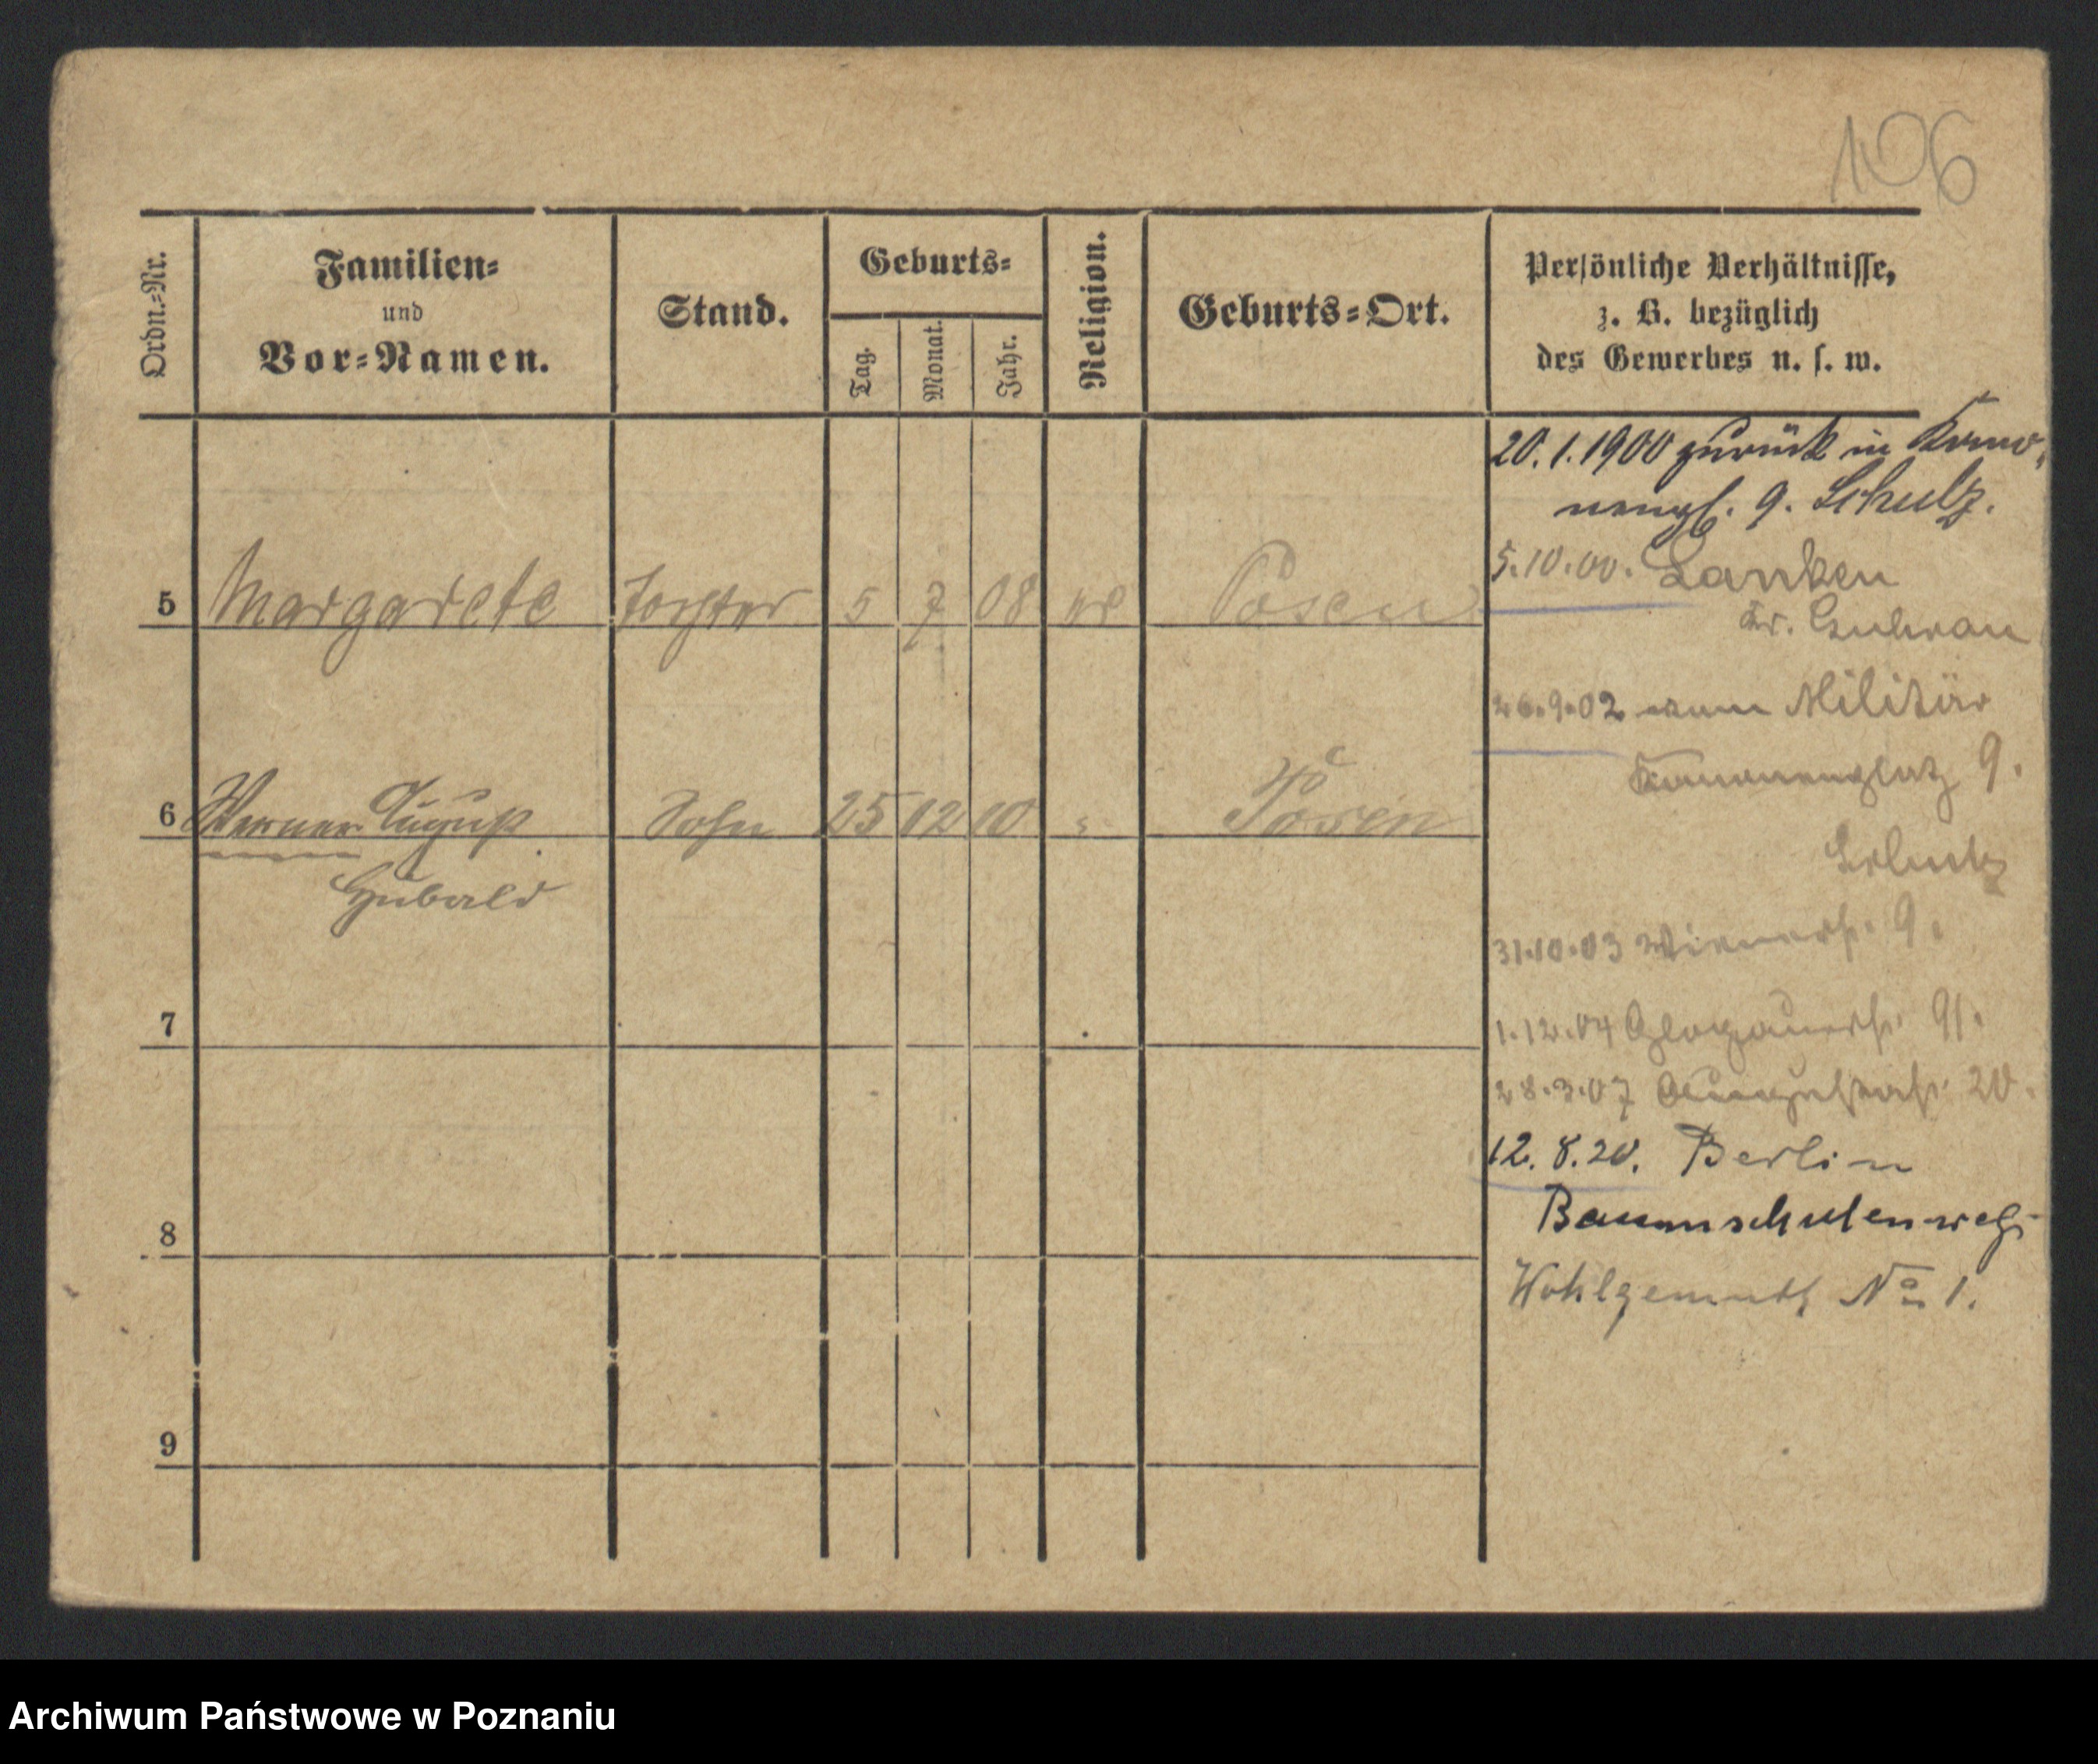 106
Ordn.=Nr.
Familien=
und
Vor=Namen.
Stand.
Geburts=
Tag.
Monat.
Jahr.
Religion.
Geburts=Ort.
Persönliche Verhältnisse,
z. B. bezüglich
des Gewerbes u. s. w.
20.1.1900 zurück in
9. Schulz.
5 Margarete Tochter 5 7 08 Posen
5.10.00. Lanken
Kr. Guhrau
26.9.02 zum Militär
Kanonenplatz 9.
6 Werner August Sohn 25 12 10 " Posen
Hubald
31.10.03 9.
7
1.12.04 Glogauerstr. 91.
28.3.07 Augustastr. 20.
12.8.20. Berlin
Baumschulenweg
8
Wohlgemuth No 1.
9
Archiwum Państwowe w Poznaniu